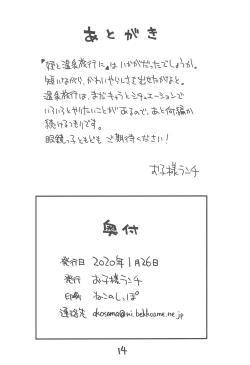 あとがき
『姪と温泉旅行に』はいかがだったでしょうか。
短いながら、かわいやらしさを出せたかなと。
温泉旅行は、まだキャラとシチュエーションで
いろいろとやりたいことがあるので、あと何編か
続けるつもりです。
眼鏡っ子ともども ご期待ください!
お子様ランチ
奥付
発行日 2020年1月26日
発行 お子様ランチ
印刷 ねこのしっぽ
連絡先 okosama@ni.bekkoame.ne.jp
14